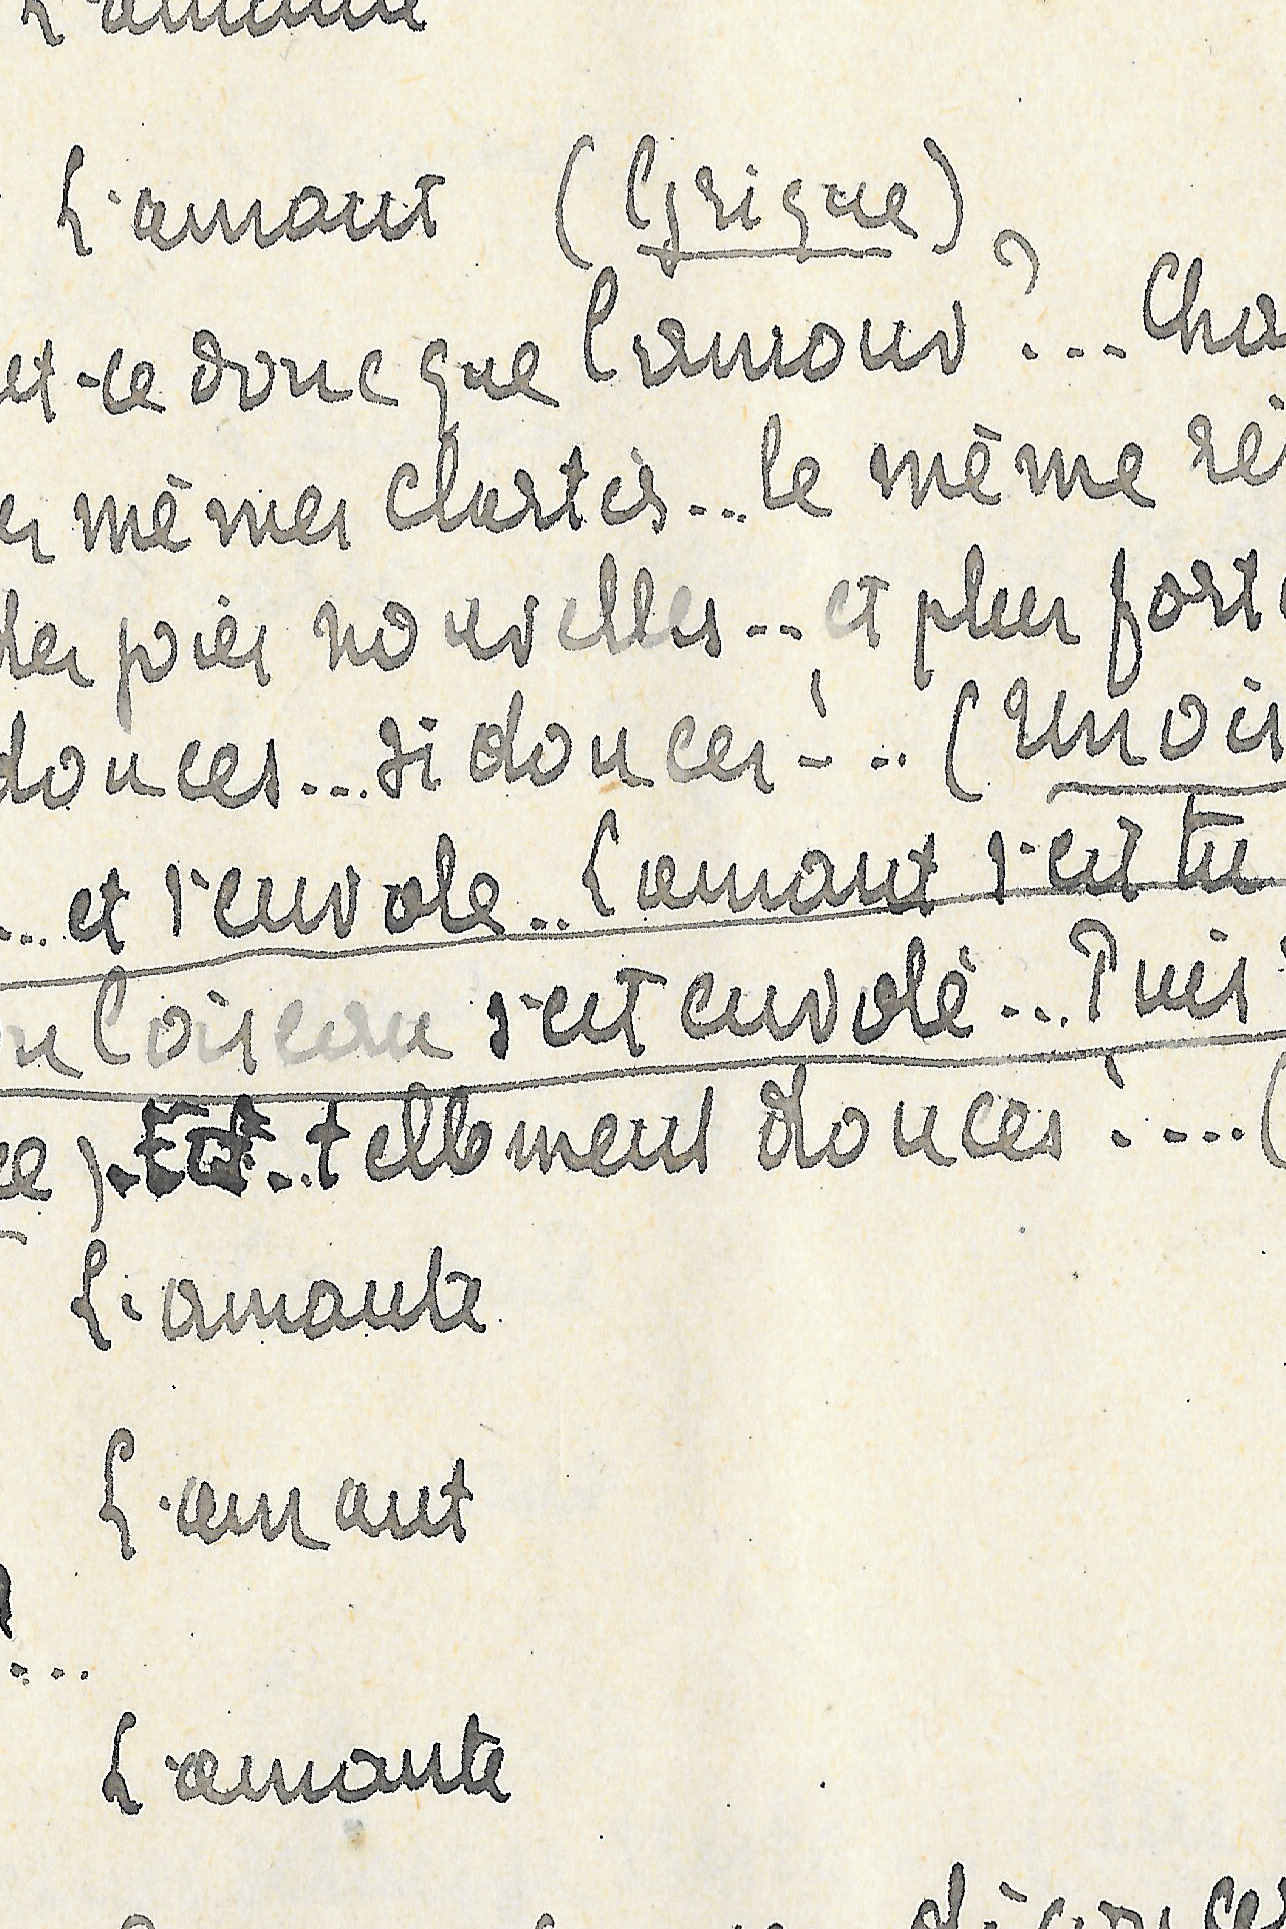 L'amante
L'amant (lyrique)
et-ce donc que l'amour ?... Cha
es mêmes clartés... le même ré
des joies nouvelles... et plus fort
douces... si douces !... (un ois
... et s'envole... L'amant s'est tu
l'oiseau s'est envolé... Puis
ce)... tellement douces !... (
L'amante
L'amant
...
L'amante